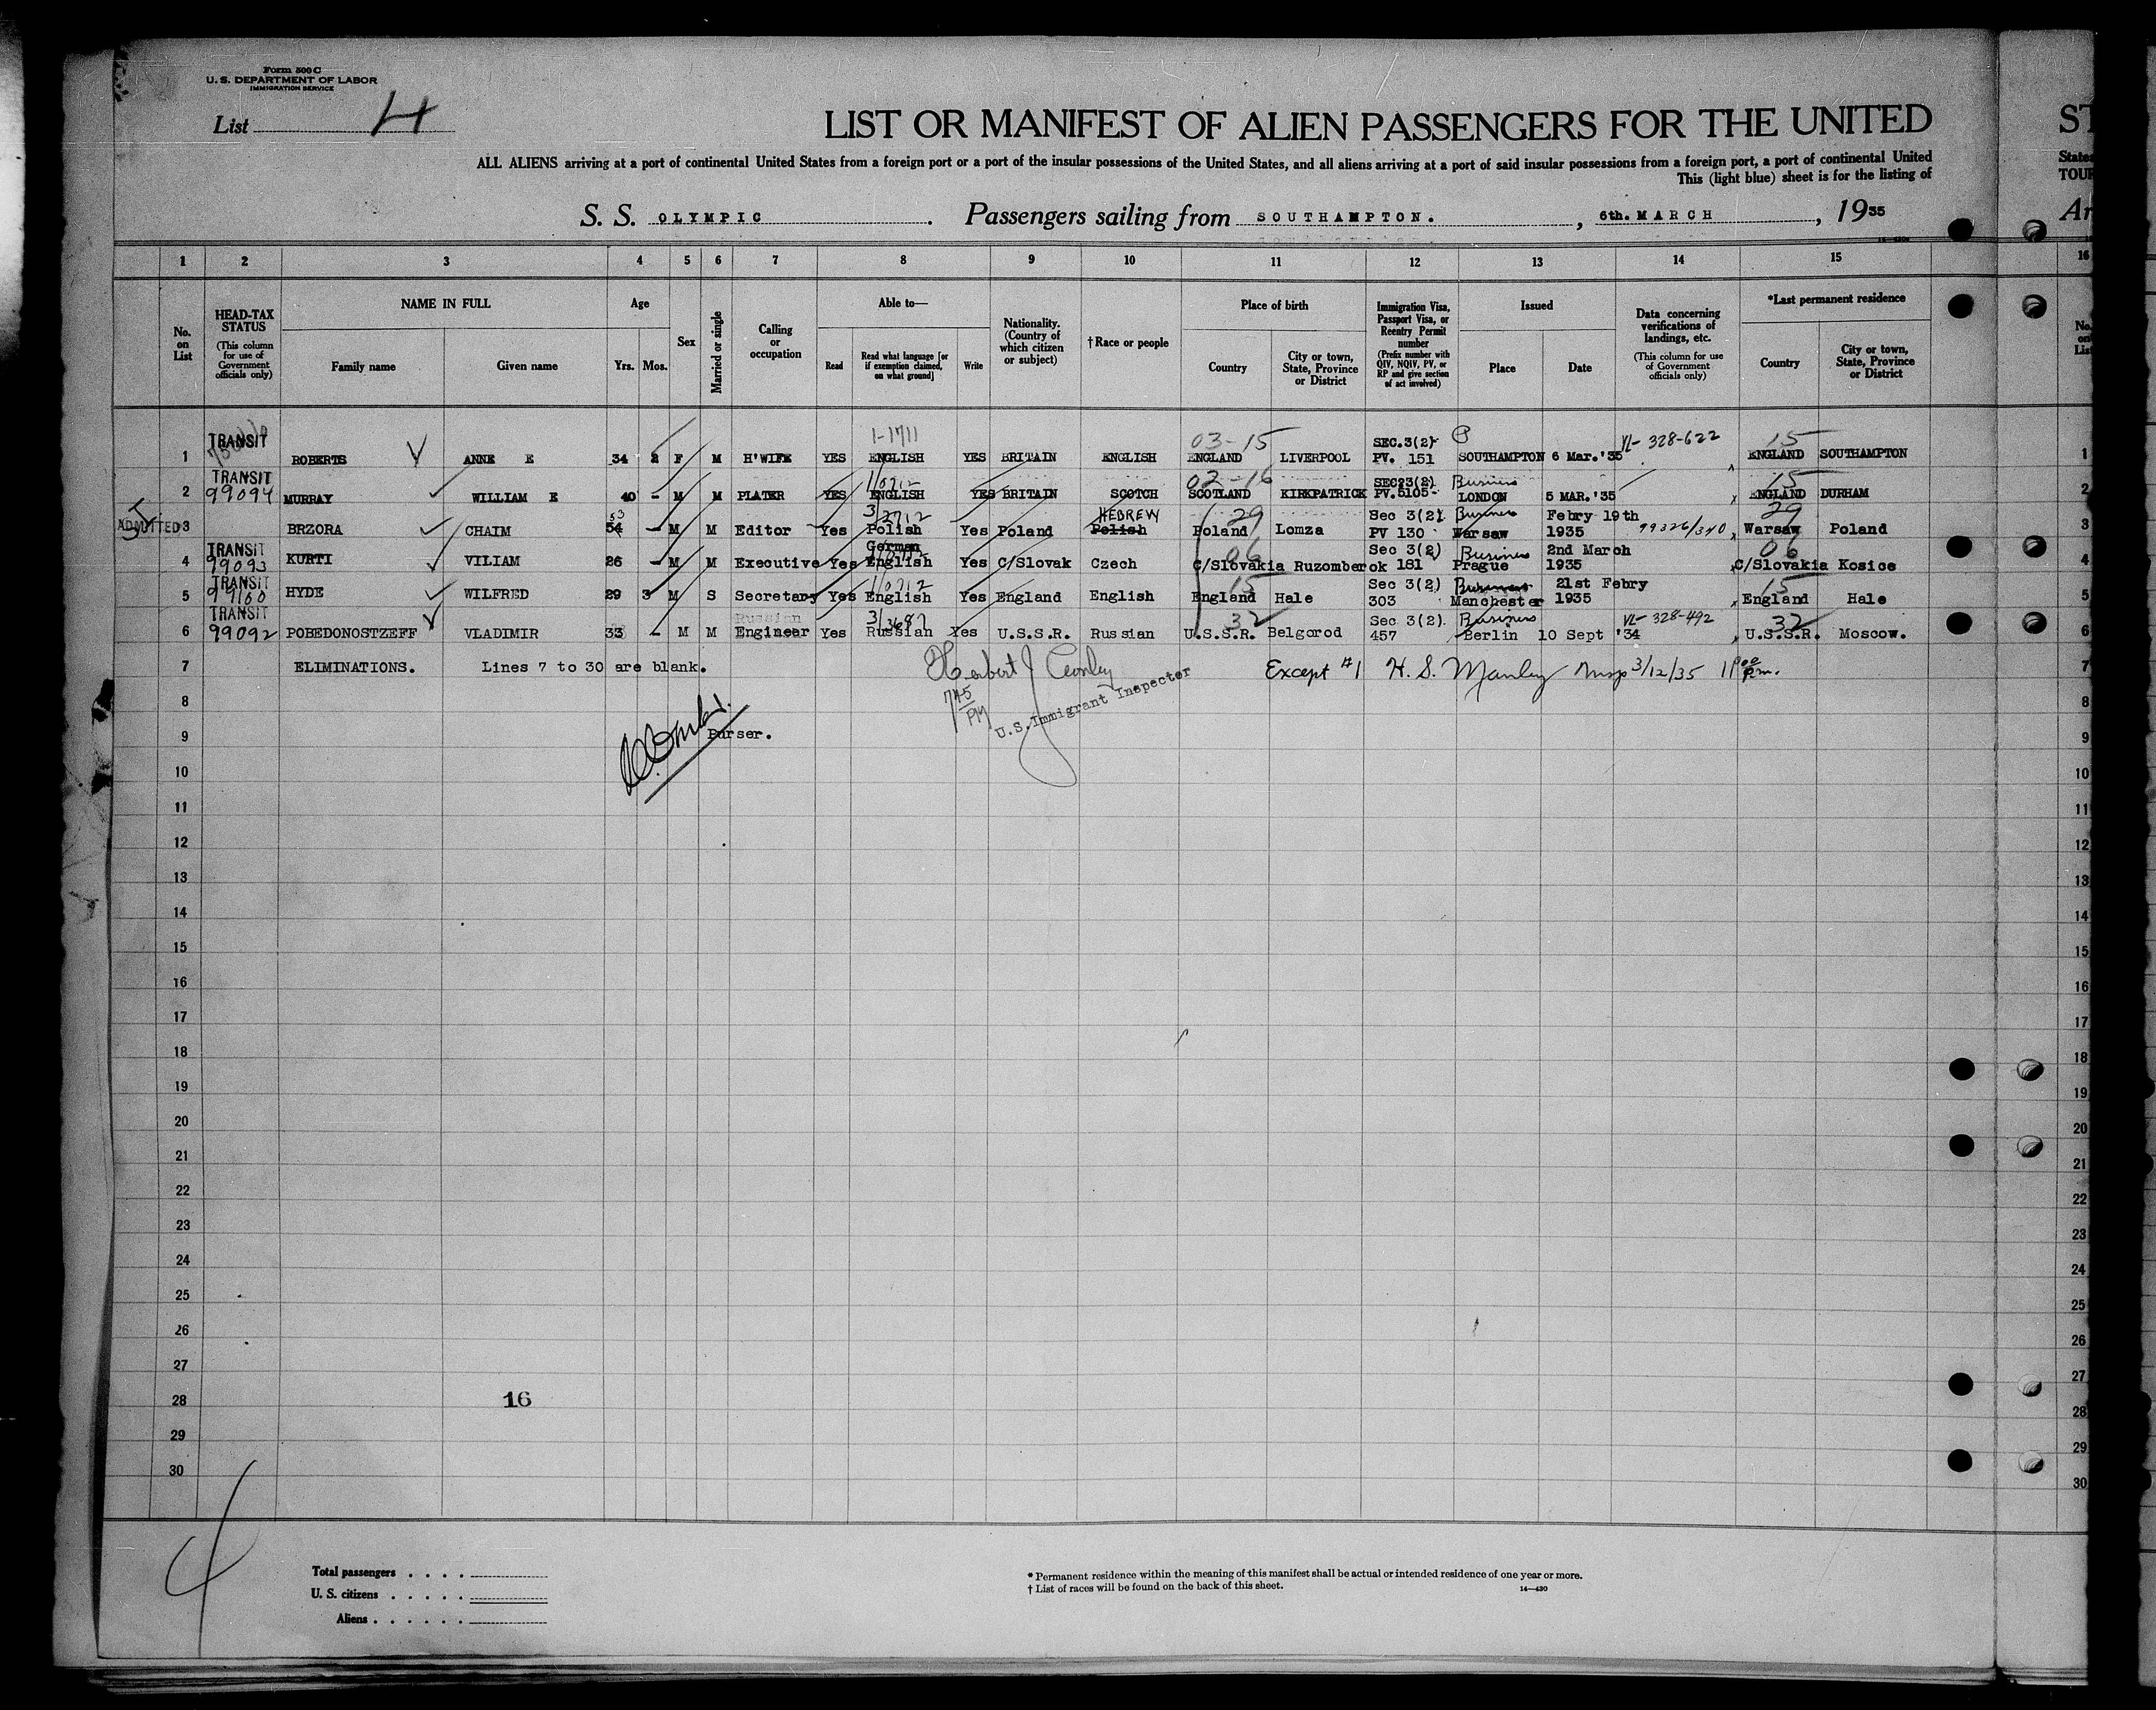 Form 500 C
U. S. DEPARTMENT OF LABOR
IMMIGRATION SERVICE
List 4
LIST OR MANIFEST OF ALIEN PASSENGERS FOR THE UNITED
ST
ALL ALIENS arriving at a port of continental United States from a foreign port or a port of the insular possessions of the United States, and all aliens arriving at a port of said insular possessions from a foreign port, a port of continental United
States
This (light blue) sheet is for the listing of
TOUR
S. S. OLYMPIC. Passengers sailing from SOUTHAMPTON. , 6th. MARCH , 1935
Ar
1 2 3 4 5 6 7 8 9 10 11 12 13 14 15 16
No. on List
HEAD-TAX STATUS (This column for use of Government officials only)
NAME IN FULL Family name Given name
Age Yrs. Mos.
Sex
Married or single
Calling or occupation
Able to— Read Read what language [or if exemption claimed, on what ground] Write
Nationality. (Country of which citizen or subject)
†Race or people
Place of birth Country City or town, State, Province or District
Immigration Visa, Passport Visa, or Reentry Permit number (Prefix number with QIV, NQIV, PV, or RP and give section of act involved)
Issued Place Date
Data concerning verifications of landings, etc. (This column for use of Government officials only)
*Last permanent residence Country City or town, State, Province or District
No. on List
TRANSIT 1-1711 03-15 SEC.3(2) P VL-328-622 15
1 ROBERTS ANNE E 34 2 F M H'WIFE YES ENGLISH YES BRITAIN ENGLISH ENGLAND LIVERPOOL PV. 151 SOUTHAMPTON 6 Mar.'35 ENGLAND SOUTHAMPTON 1
TRANSIT 02-16 SEC23(2) Business 15
2 99094 MURRAY WILLIAM E 40 - M M PLATER YES ENGLISH YES BRITAIN SCOTCH SCOTLAND KIRKPATRICK PV.5105- LONDON 5 MAR.'35 ENGLAND DURHAM 2
53 3/2712 HEBREW 29 Sec 3(2). Business Febry 19th 29
ADMITTED 3 BRZORA CHAIM 54 - M M Editor Yes Polish Yes Poland Polish Poland Lomza PV 130 Warsaw 1935 99326/340 Warsaw Poland 3
TRANSIT German 06 Sec 3(2) Business 2nd March 06
4 99093 KURTI VILIAM 26 - M M Executive Yes English Yes C/Slovak Czech C/Slovakia Ruzomberok 181 Prague 1935 C/Slovakia Kosice 4
TRANSIT 15 Sec 3(2) Business 21st Febry 15
5 99100 HYDE WILFRED 29 3 M S Secretary Yes English Yes England English England Hale 303 Manchester 1935 England Hale 5
TRANSIT Russian 3/3687 32 Sec 3(2). Business VL-328-492 32
6 99092 POBEDONOSTZEFF VLADIMIR 33 - M M Engineer Yes Russian Yes U.S.S.R. Russian U.S.S.R. Belgorod 457 Berlin 10 Sept '34 U.S.S.R. Moscow. 6
7 ELIMINATIONS. Lines 7 to 30 are blank. Except #1 H. S. Manley Insp 3/12/35 7
745 PM U.S. Immigrant Inspector
8 8
9 Purser. 9
10 10
11 11
12 12
13 13
14 14
15 15
16 16
17 17
18 18
19 19
20 20
21 21
22 22
23 23
24 24
25 25
26 26
27 27
28 16 28
29 29
30 30
4
Total passengers . . . .
U. S. citizens . . . . .
Aliens . . . . . .
* Permanent residence within the meaning of this manifest shall be actual or intended residence of one year or more.
† List of races will be found on the back of this sheet. 14—430